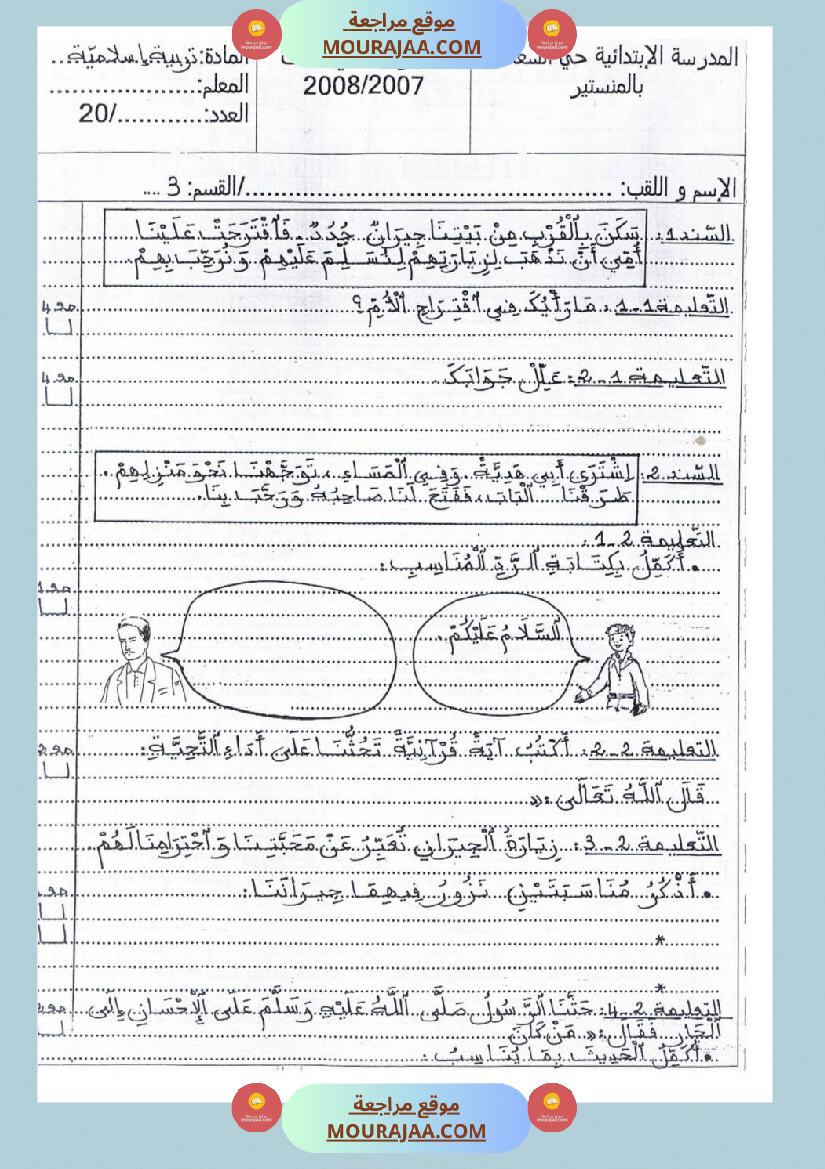 موقع مراجعة
MOURAJAA.COM
المدرسة الإبتدائية حي
بالمنستير
2008/2007
المادة: تربية إسلاميّة..
المعلم:....................
العدد:............/20
الإسم و اللقب: ..................................................../القسم: 3 ....
السّند1: سَكَنَ بِالْقُرْبِ مِنْ بَيْتِنَا جِيرَانٌ جُدُدٌ. فَاقْتَرَحَتْ عَلَيْنَا
أُمِّي أَنْ نَذْهَبَ لِزِيَارَتِهِمْ لِنُسَلِّمَ عَلَيْهِمْ وَنُرَحِّبَ بِهِمْ.
التّعليمة 1-1: مَا رَأْيُكَ فِي اقْتِرَاحِ الْأُمِّ؟
مع 4
التّعليمة 1-2: عَلِّلْ جَوَابَكَ
مع 4
السّند 2: اِشْتَرَى أَبِي هَدِيَّةً وَفِي الْمَسَاءِ، تَوَجَّهْنَا نَحْوَ مَنْزِلِهِمْ.
طَرَقْنَا الْبَابَ، فَفَتَحَ لَنَا صَاحِبُهُ وَرَحَّبَ بِنَا.
التّعليمة 2-1:
• أُكَمِّلُ بِكِتَابَةِ الرَّدِّ الْمُنَاسِبِ:
مع 1
السَّلَامُ عَلَيْكُمْ.
التعليمة 2-2: أَكْتُبُ آيَةً قُرْآنِيَّةً تَحُثُّنَا عَلَى أَدَاءِ التَّحِيَّةِ:
قَالَ اللَّهُ تَعَالَى: «
التّعليمة 2-3: زِيَارَةُ الْجِيرَانِ تُعَبِّرُ عَنْ مَحَبَّتِنَا وَاحْتِرَامِنَا لَهُمْ
• أَذْكُرُ مُنَاسَبَتَيْنِ نَزُورُ فِيهِمَا جِيرَانَنَا:
*
*
التعليمة 2-4: حَثَّنَا الرَّسُولُ صَلَّى اللَّهُ عَلَيْهِ وَسَلَّمَ عَلَى الْإِحْسَانِ إِلَى
الْجَارِ فَقَالَ: « مَنْ كَانَ
• أُكَمِّلُ الْحَدِيثَ بِمَا يُنَاسِبُ:
موقع مراجعة
MOURAJAA.COM